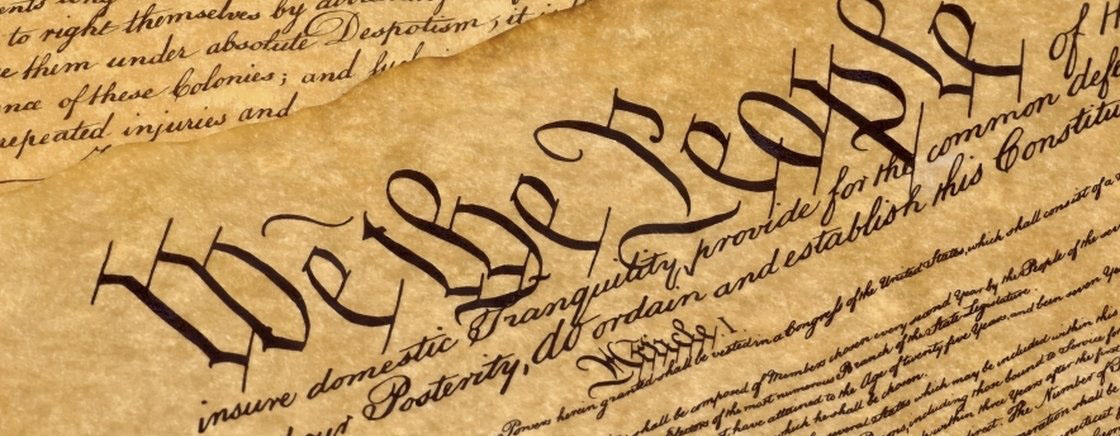 to right themselves by
them under absolute Despotism; it
of these Colonies; and
repeated injuries and
We the People of
insure domestic Tranquility, provide for the common
Posterity, do ordain and establish this
Article. I.
Powers herein granted shall be vested in a Congress of the United States, which shall consist of a
shall be composed of Members chosen every second Year by the People of the
of the most numerous Branch of the State Legislature.
have attained to the Age of twenty five Years, and been seven
which he shall be chosen.
several States which may be included within this
including those bound to Service
within three Years after the
The Number of